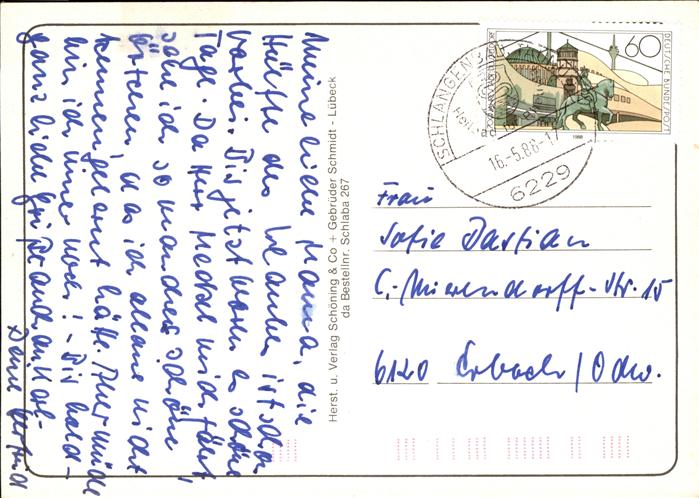 Meine liebe Mamma, die
Hälfte des Urlaubes ist schon
vorbei. Bis jetzt waren es schöne
Tage. Da Herr Merkel mich fährt,
sehe ich so manches schöne
Örtchen, was ich alleine nicht
kennengelernt hätte. Aber müde
bin ich immer noch! - Bis bald -
ganz liebe Grüße auch an
Deine
Herst. u. Verlag Schöning & Co + Gebrüder Schmidt - Lübeck
da Bestellnr. Schlaba 267
60
DEUTSCHE BUNDESPOST
1988
SCHLANGENB
16.-5.88-17
6229
Frau
Sofie Bastian
C.-Mierendorff-Str. 15
6120 Erbach/Odw.